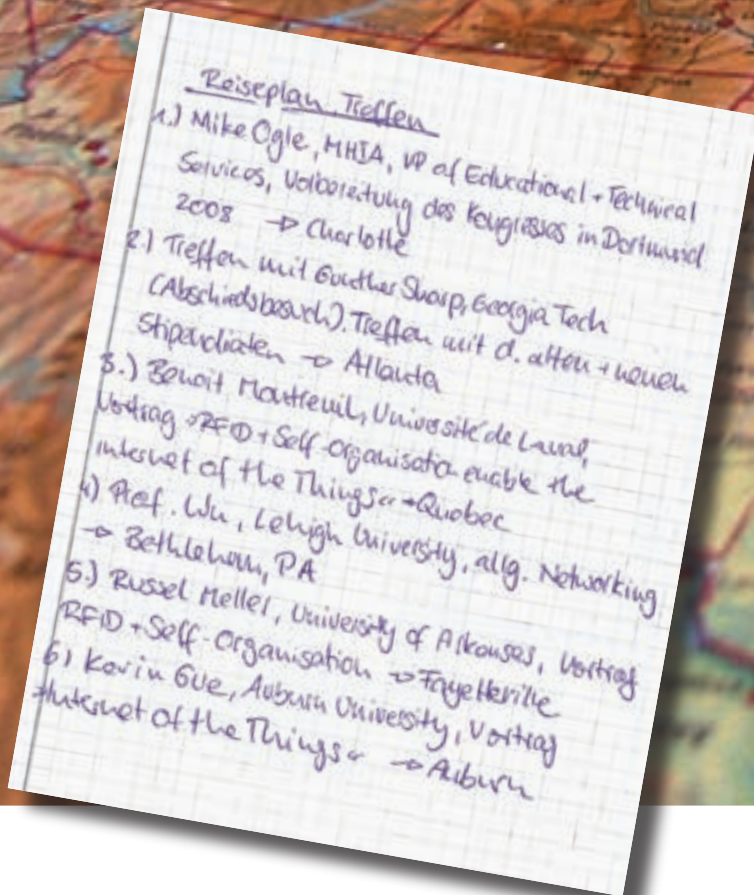 Reiseplan Treffen
1.) Mike Ogle, MHIA, VP of Educational + Technical
Services, Vorbereitung des Kongresses in Dortmund
2008 → Charlotte
2.) Treffen mit Gunther Sharp, Georgia Tech
(Abschiedsbesuch). Treffen mit d. alten + neuen
Stipendiaten → Atlanta
3.) Benoit Montreuil, Université de Laval,
Vortrag »RFID + Self-Organisation enable the
internet of the Things« → Quebec
4) Prof. Wu, Lehigh University, allg. Networking
→ Bethlehem, PA
5.) Russel Meller, University of Arkansas, Vortrag
RFID + Self-Organisation → Fayetteville
6) Kevin Gue, Auburn University, Vortrag
»Internet of the Things« → Auburn